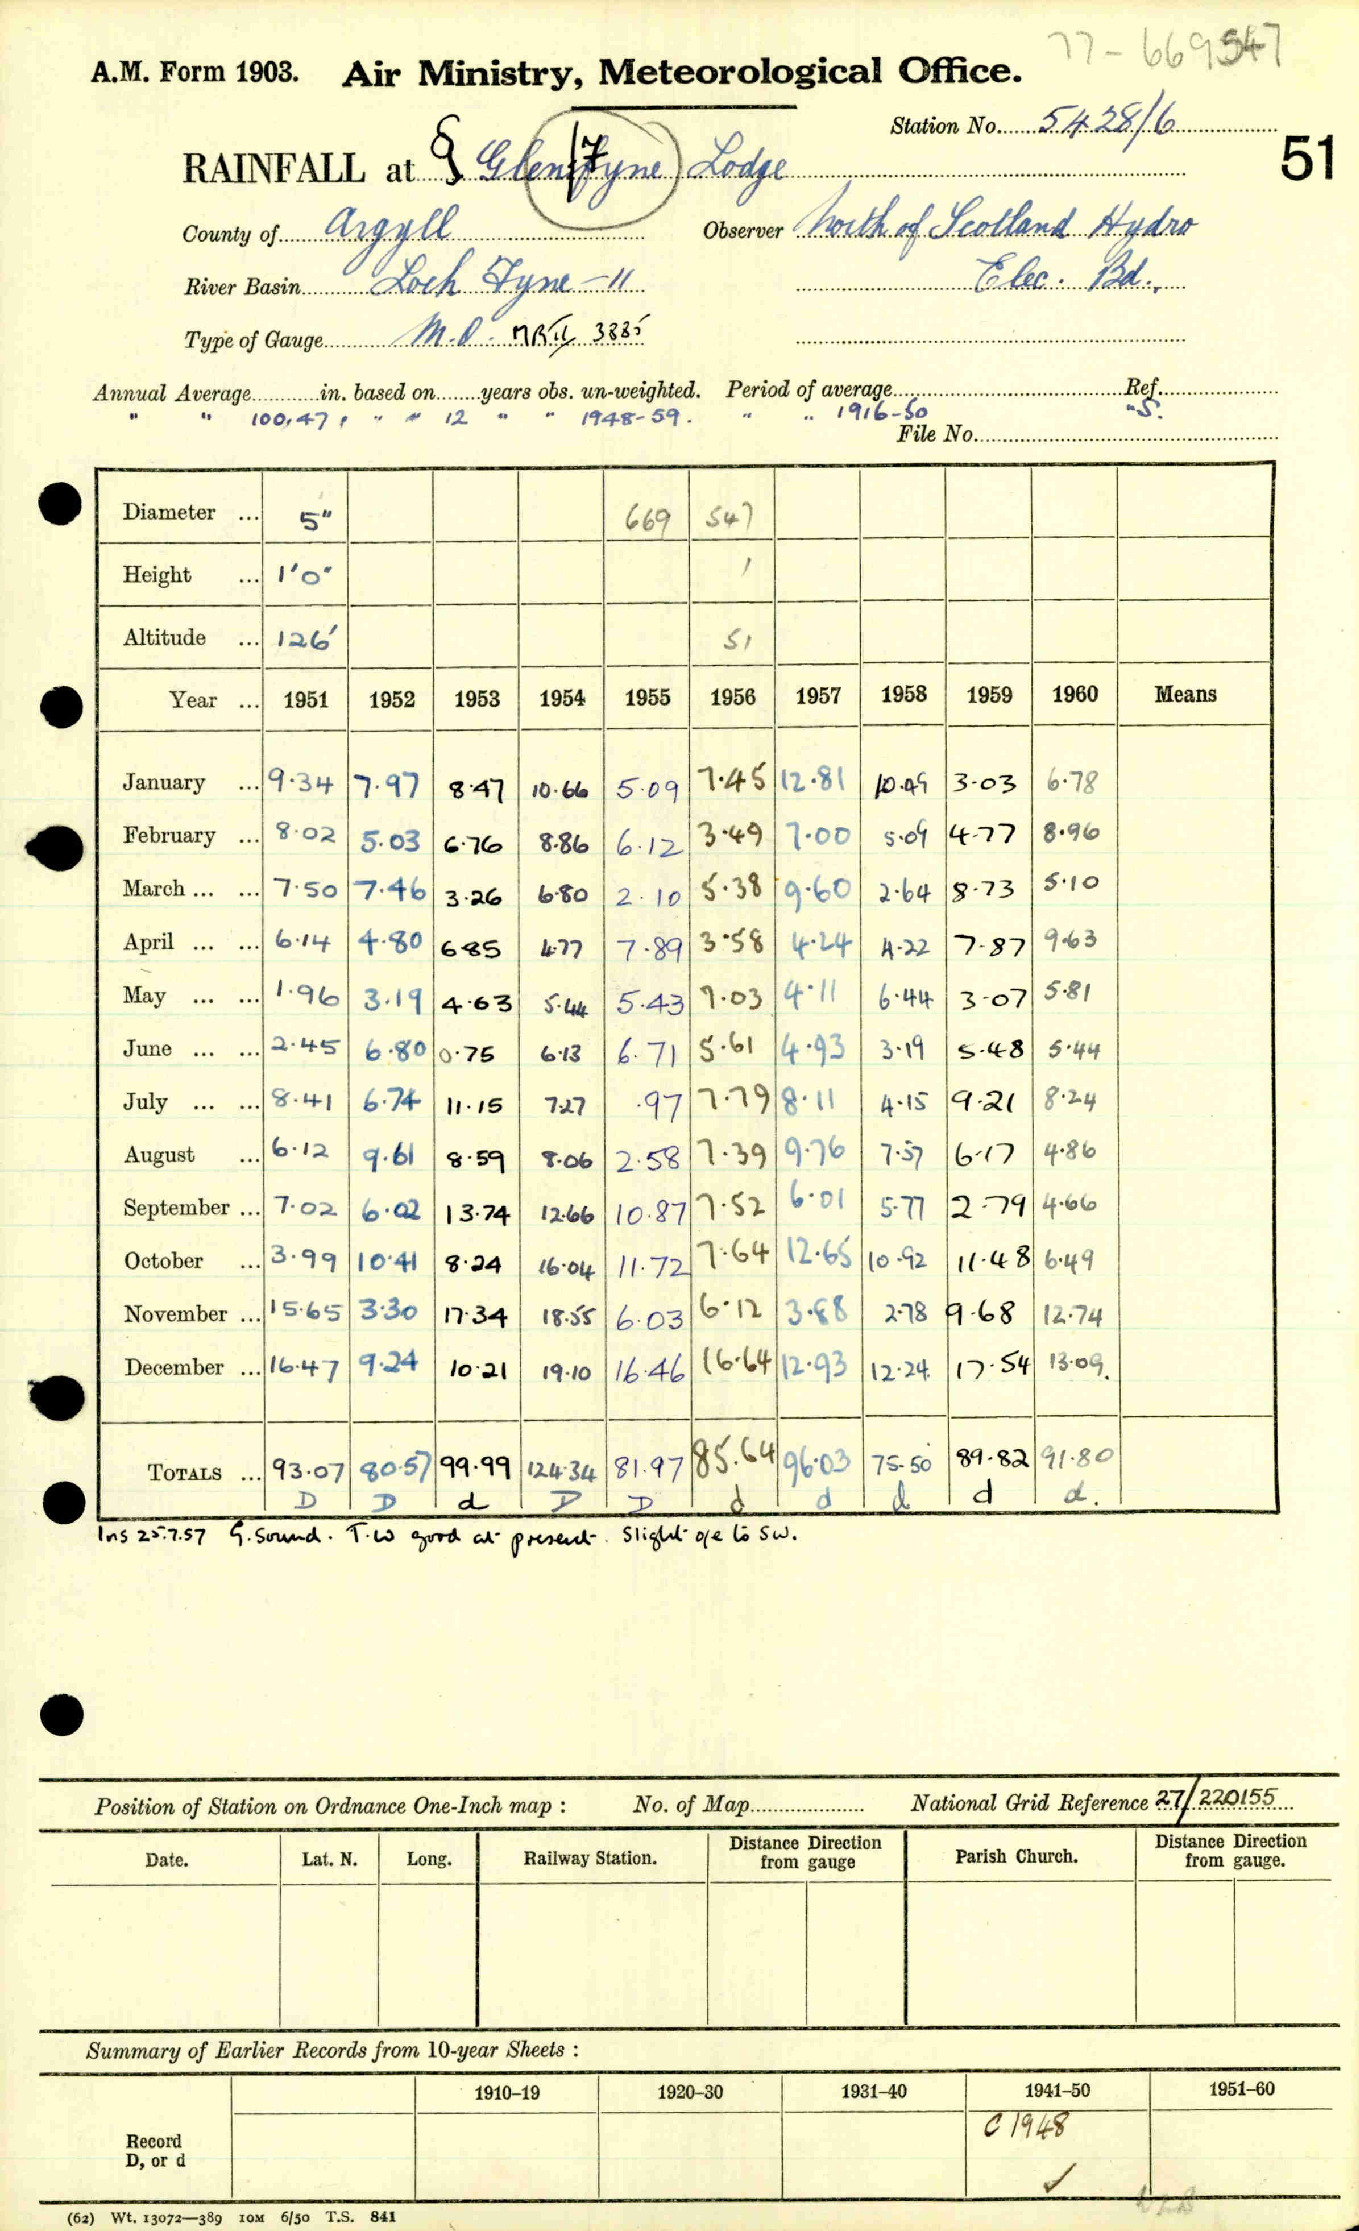 77-669547
A.M. Form 1903. Air Ministry, Meteorological Office.
Station No. 5428/6
RAINFALL at § Glenfyne Lodge 51
County of Argyll Observer North of Scotland Hydro
River Basin Loch Fyne - 11 Elec. Bd.,
Type of Gauge M.O. MRII 3885
Annual Average in. based on years obs. un-weighted. Period of average Ref.
" " 100.47, " " 12 " " 1948-59. " " 1916-50 "S.
File No.
Diameter ... 5" 669 547
Height ... 1'0" 1
Altitude ... 126' 51
Year ... 1951 1952 1953 1954 1955 1956 1957 1958 1959 1960 Means
January ... 9.34 7.97 8.47 10.66 5.09 7.45 12.81 10.49 3.03 6.78
February ... 8.02 5.03 6.76 8.86 6.12 3.49 7.00 5.09 4.77 8.96
March ... ... 7.50 7.46 3.26 6.80 2.10 5.38 9.60 2.64 8.73 5.10
April ... ... 6.14 4.80 6.85 4.77 7.89 3.58 4.24 4.22 7.87 9.63
May ... ... 1.96 3.19 4.63 5.44 5.43 7.03 4.11 6.44 3.07 5.81
June ... ... 2.45 6.80 0.75 6.13 6.71 5.61 4.93 3.19 5.48 5.44
July ... ... 8.41 6.74 11.15 7.27 .97 7.79 8.11 4.15 9.21 8.24
August ... 6.12 9.61 8.59 8.06 2.58 7.39 9.76 7.57 6.17 4.86
September ... 7.02 6.02 13.74 12.66 10.87 7.52 6.01 5.77 2.79 4.66
October ... 3.99 10.41 8.24 16.04 11.72 7.64 12.65 10.92 11.48 6.49
November ... 15.65 3.30 17.34 18.55 6.03 6.12 3.88 2.78 9.68 12.74
December ... 16.47 9.24 10.21 19.10 16.46 16.64 12.93 12.24 17.54 13.09.
TOTALS ... 93.07 80.57 99.99 124.34 81.97 85.64 96.03 75.50 89.82 91.80
D D d D D d d d d d.
Ins 25.7.57 G. Sound. T.W good at present. Slight o/e to SW.
Position of Station on Ordnance One-Inch map : No. of Map National Grid Reference 27/220155
Date. Lat. N. Long. Railway Station. Distance Direction from gauge Parish Church. Distance Direction from gauge.
Summary of Earlier Records from 10-year Sheets :
1910–19 1920–30 1931–40 1941–50 1951–60
C 1948
Record
D, or d
✓
(62) Wt. 13072—389 10M 6/50 T.S. 841